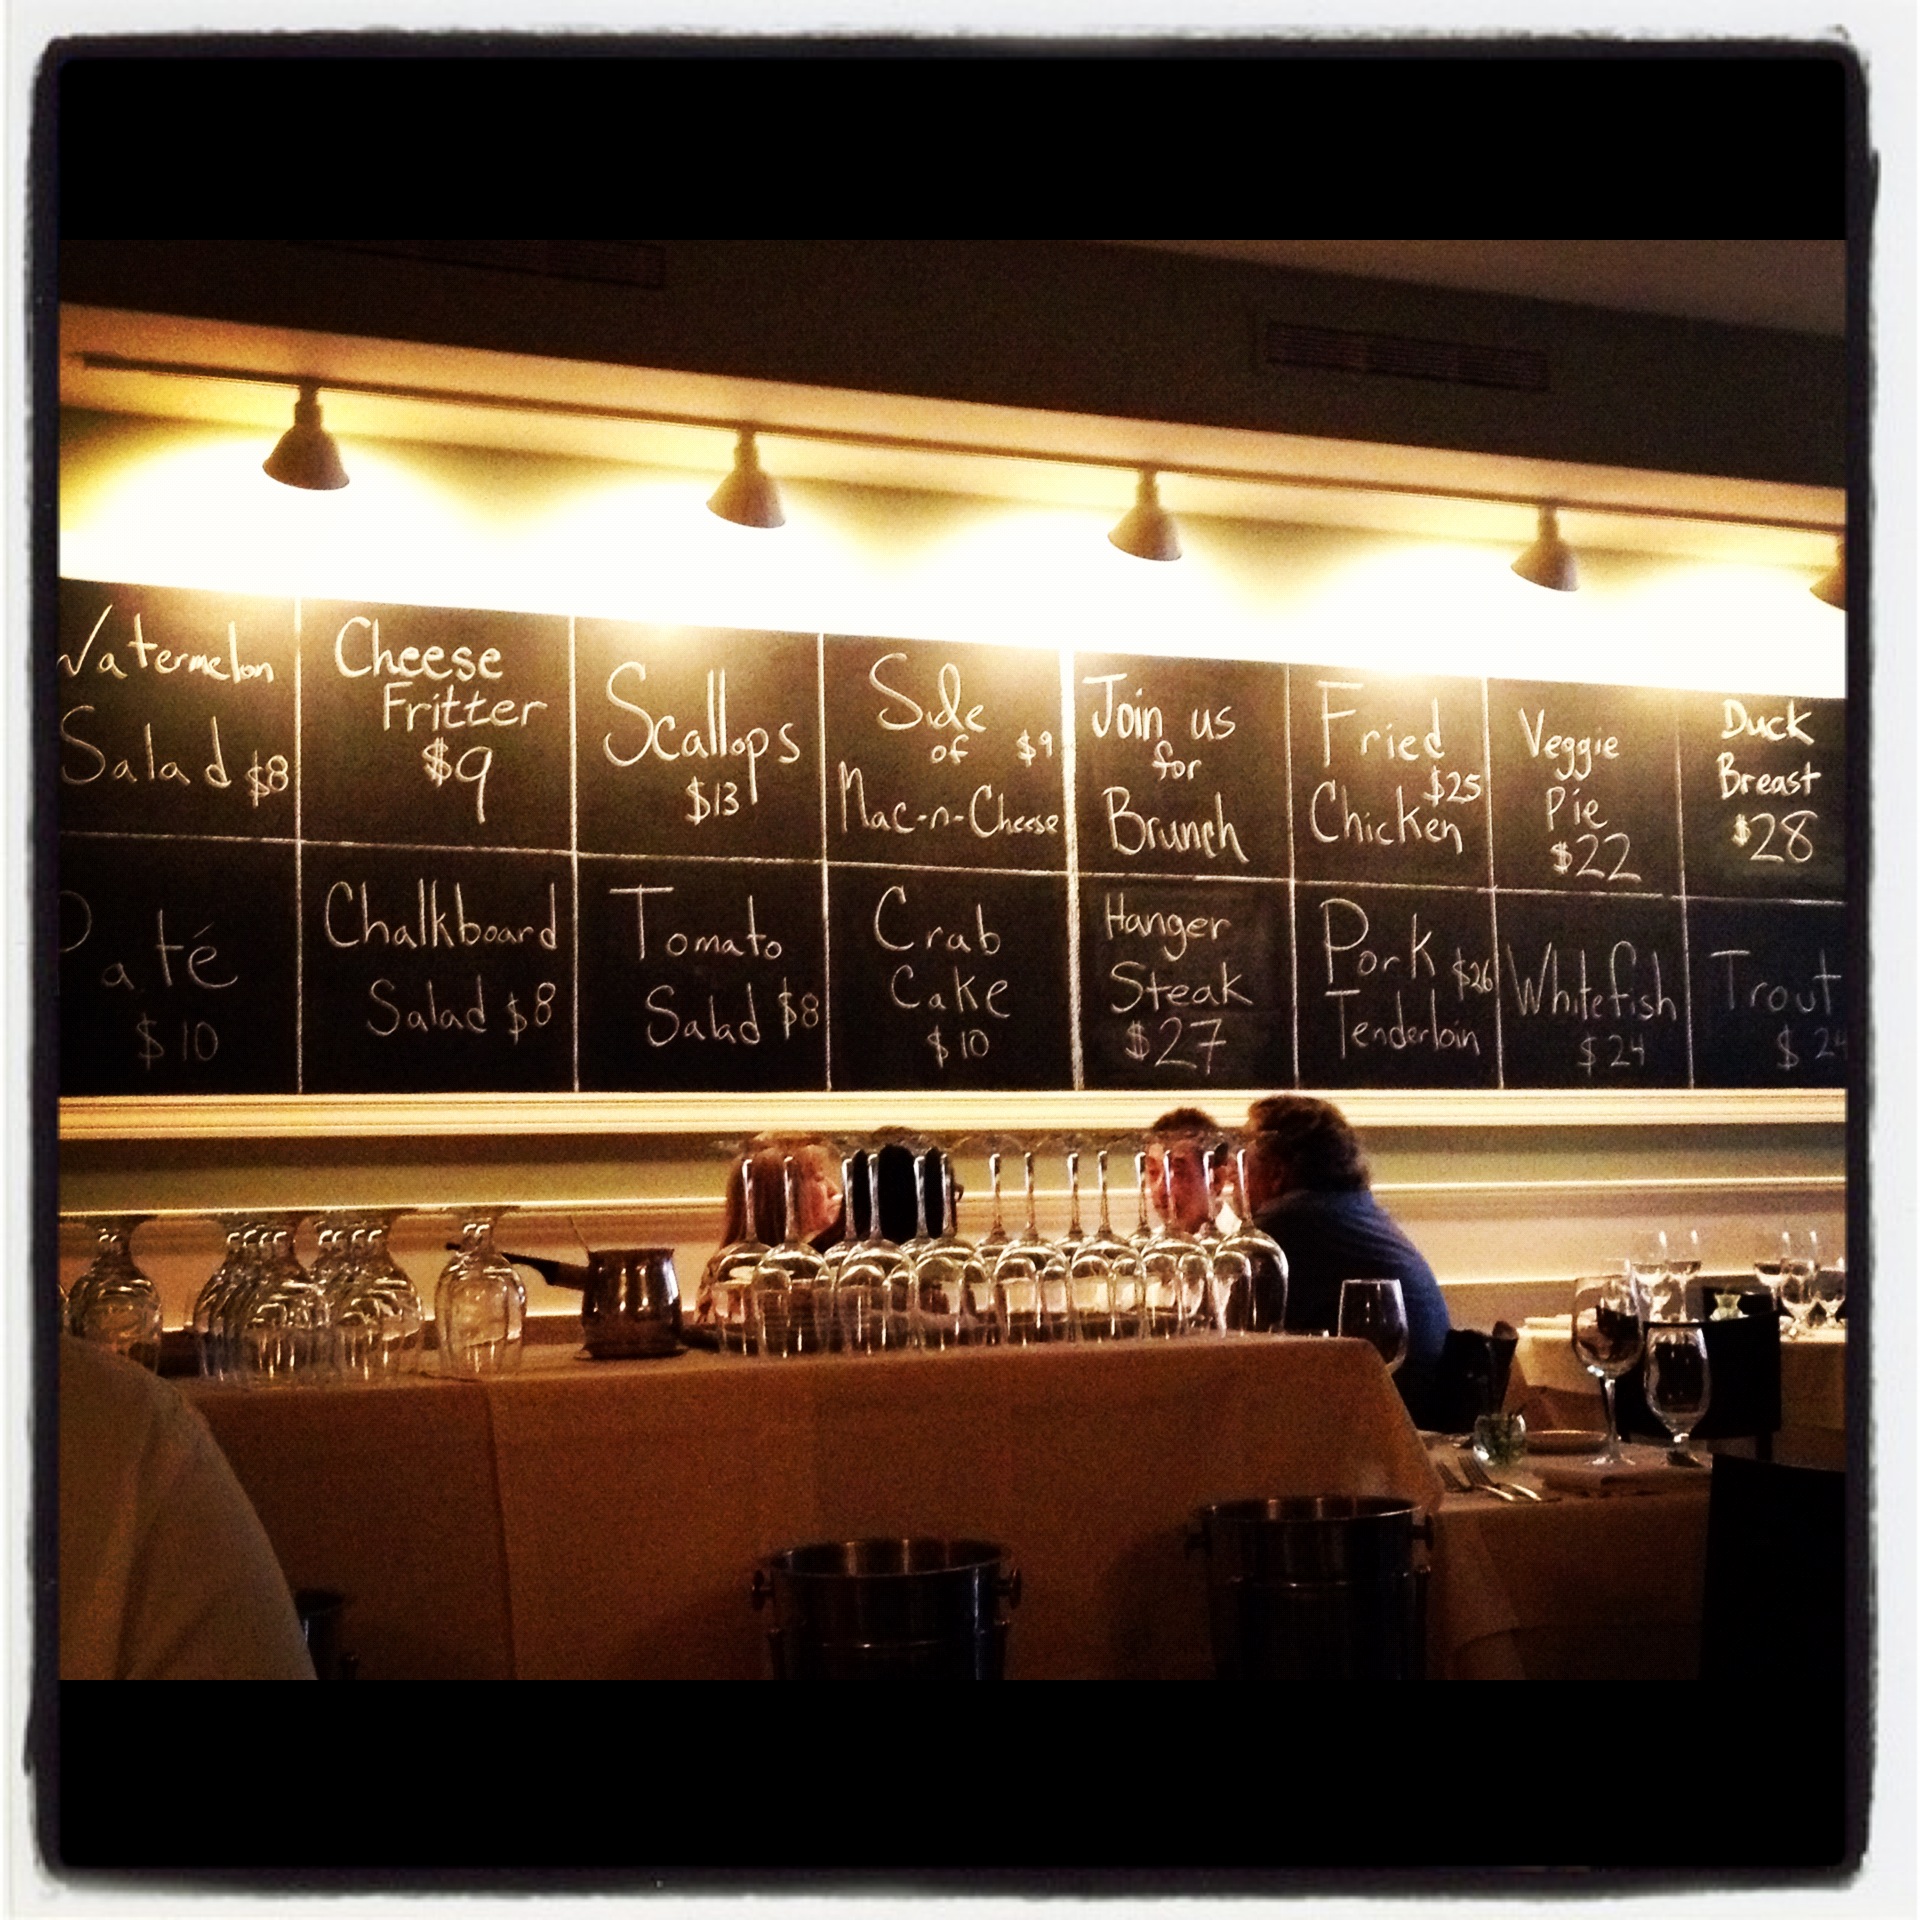 Watermelon
Salad $8
Cheese
Fritter
$9
Scallops
$13
Side
of $9
Mac-n-Cheese
Join us
for
Brunch
Fried
$25
Chicken
Veggie
Pie
$22
Duck
Breast
$28
Paté
$10
Chalkboard
Salad $8
Tomato
Salad $8
Crab
Cake
$10
Hanger
Steak
$27
Pork $26
Tenderloin
Whitefish
$24
Trout
$24